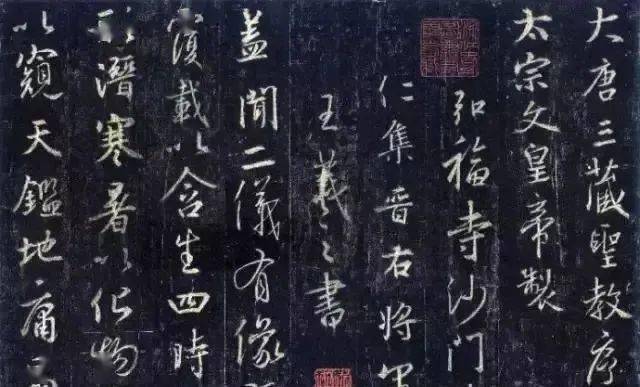 大唐三藏聖教序
太宗文皇帝製
弘福寺沙門
仁集晋右將軍
王羲之書
盖聞二儀有像
覆載以含生四時
潛寒暑以化物
以窺天鑑地庸